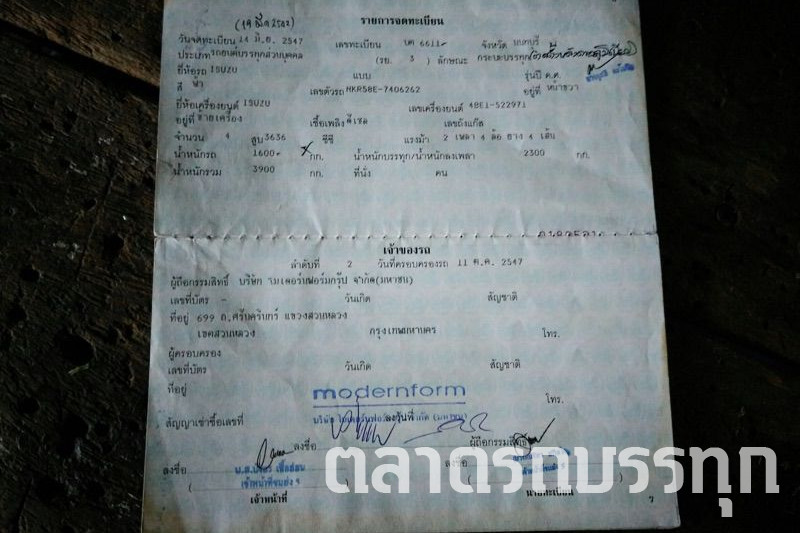 รายการจดทะเบียน
วันจดทะเบียน 14 มิ.ย. 2547 เลขทะเบียน บค 6611 จังหวัด นนทบุรี
ประเภท รถยนต์บรรทุกส่วนบุคคล (รย. 3 ) ลักษณะ กระบะบรรทุก
ยี่ห้อรถ ISUZU แบบ รุ่นปี ค.ศ.
สี ฟ้า เลขตัวรถ NKR58E-7406262 อยู่ที่ หน้าขวา
ยี่ห้อเครื่องยนต์ ISUZU เลขเครื่องยนต์ 4BE1-522971
อยู่ที่ ซ้ายเครื่อง เชื้อเพลิง ดีเซล เลขถังแก๊ส
จำนวน 4 สูบ 3636 ซีซี แรงม้า 2 เพลา 4 ล้อ ยาง 4 เส้น
น้ำหนักรถ 1600 กก. น้ำหนักบรรทุก/น้ำหนักลงเพลา 2300 กก.
น้ำหนักรวม 3900 กก. ที่นั่ง คน
เจ้าของรถ
ลำดับที่ 2 วันที่ครอบครองรถ 11 ต.ค. 2547
ผู้ถือกรรมสิทธิ์ บริษัท โมเดอร์นฟอร์มกรุ๊ป จำกัด(มหาชน)
เลขที่บัตร - วันเกิด สัญชาติ
ที่อยู่ 699 ถ.ศรีนครินทร์ แขวงสวนหลวง
เขตสวนหลวง กรุงเทพมหานคร โทร.
ผู้ครอบครอง
เลขที่บัตร วันเกิด สัญชาติ
ที่อยู่ โทร.
modernform
สัญญาเช่าซื้อเลขที่ ลงวันที่
ลงชื่อ ผู้ถือกรรมสิทธิ์
ลงชื่อ ลงชื่อ
เจ้าหน้าที่ นายทะเบียน
ตลาดรถบรรทุก